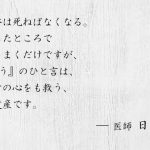 は死ねばなくなる。
したところで
まくだけですが、
う』のひと言は、
の心をも救う、
産です。
― 医師 日